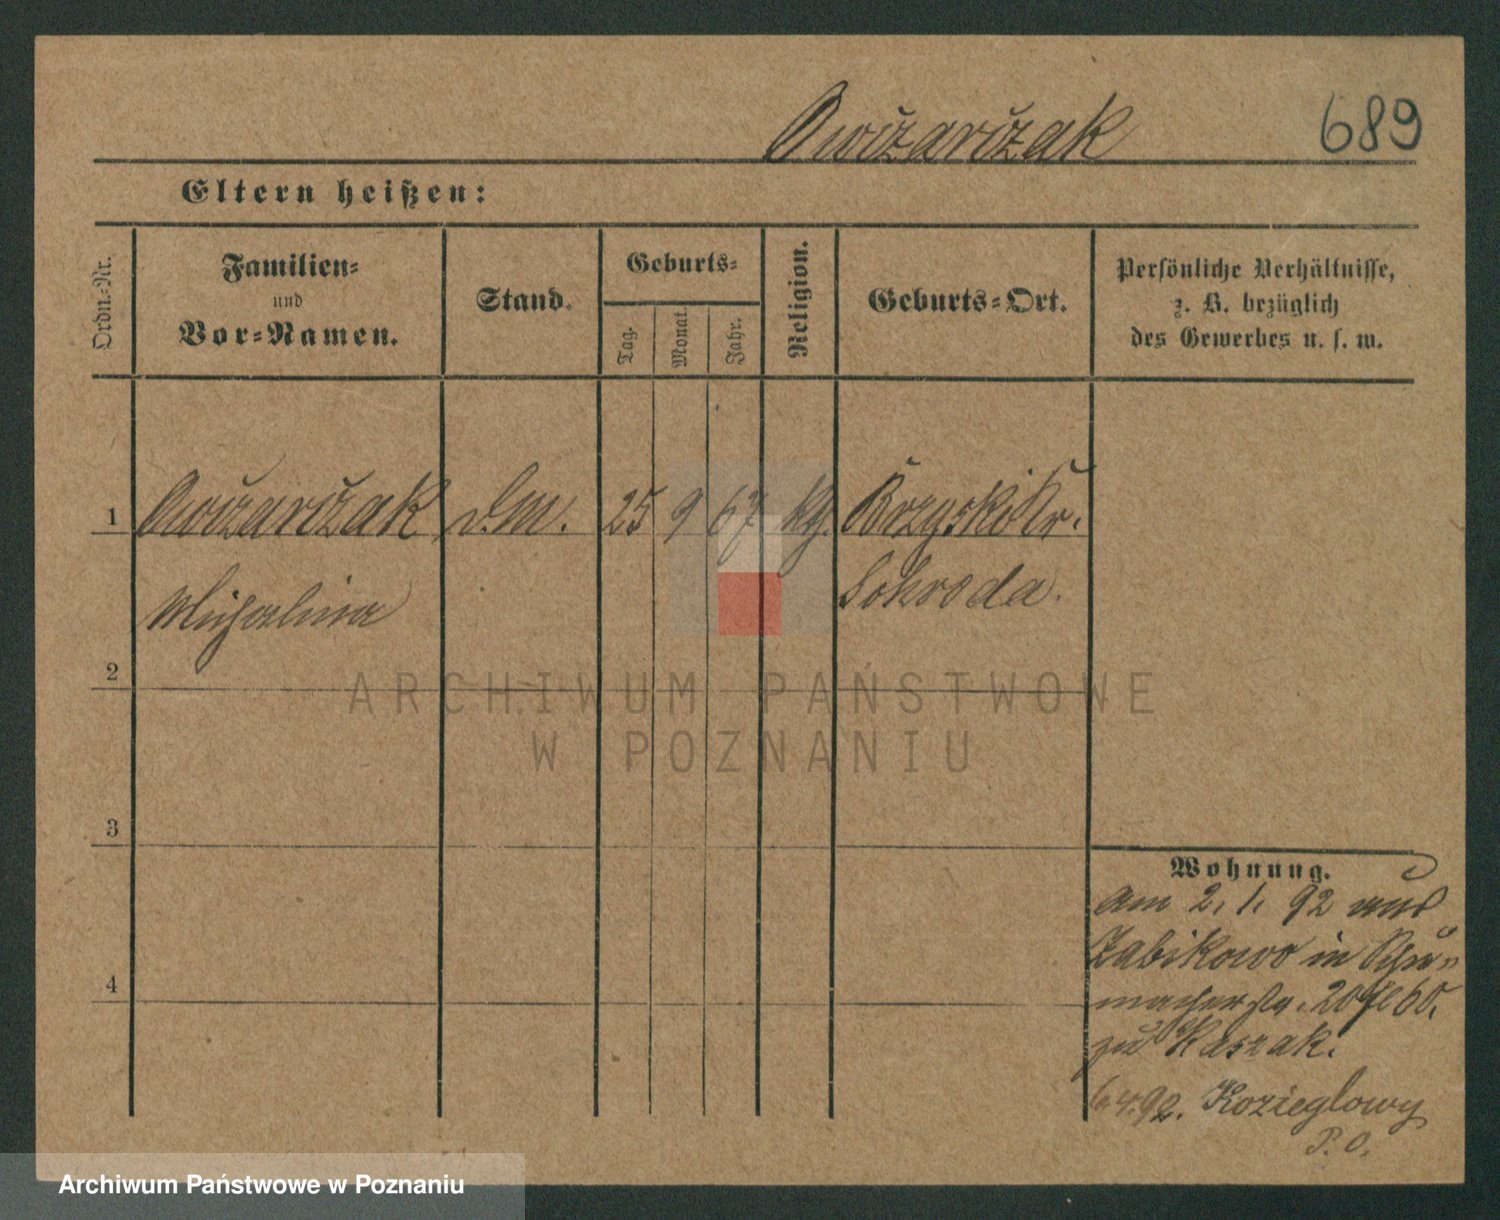 Owczarczak 689
Eltern heißen:
Ordn.-Nr.
Familien-
und
Vor-Namen.
Stand.
Geburts-
Tag.
Monat.
Jahr.
Religion.
Geburts-Ort.
Persönliche Verhältnisse,
z. B. bezüglich
des Gewerbes u. s. w.
1 Owczarczak d.M. 25 9 67 kg. Brzyski Kr.
Michalina Schroda.
2
3
4
ARCHIWUM PAŃSTWOWE
W POZNANIU
Wohnung.
am 2. 1. 92 aus
Zabikowo in Schu-
macherstr. 20
zu Kaszak.
6 4. 92. Kozieglowy
P. O.
Archiwum Państwowe w Poznaniu